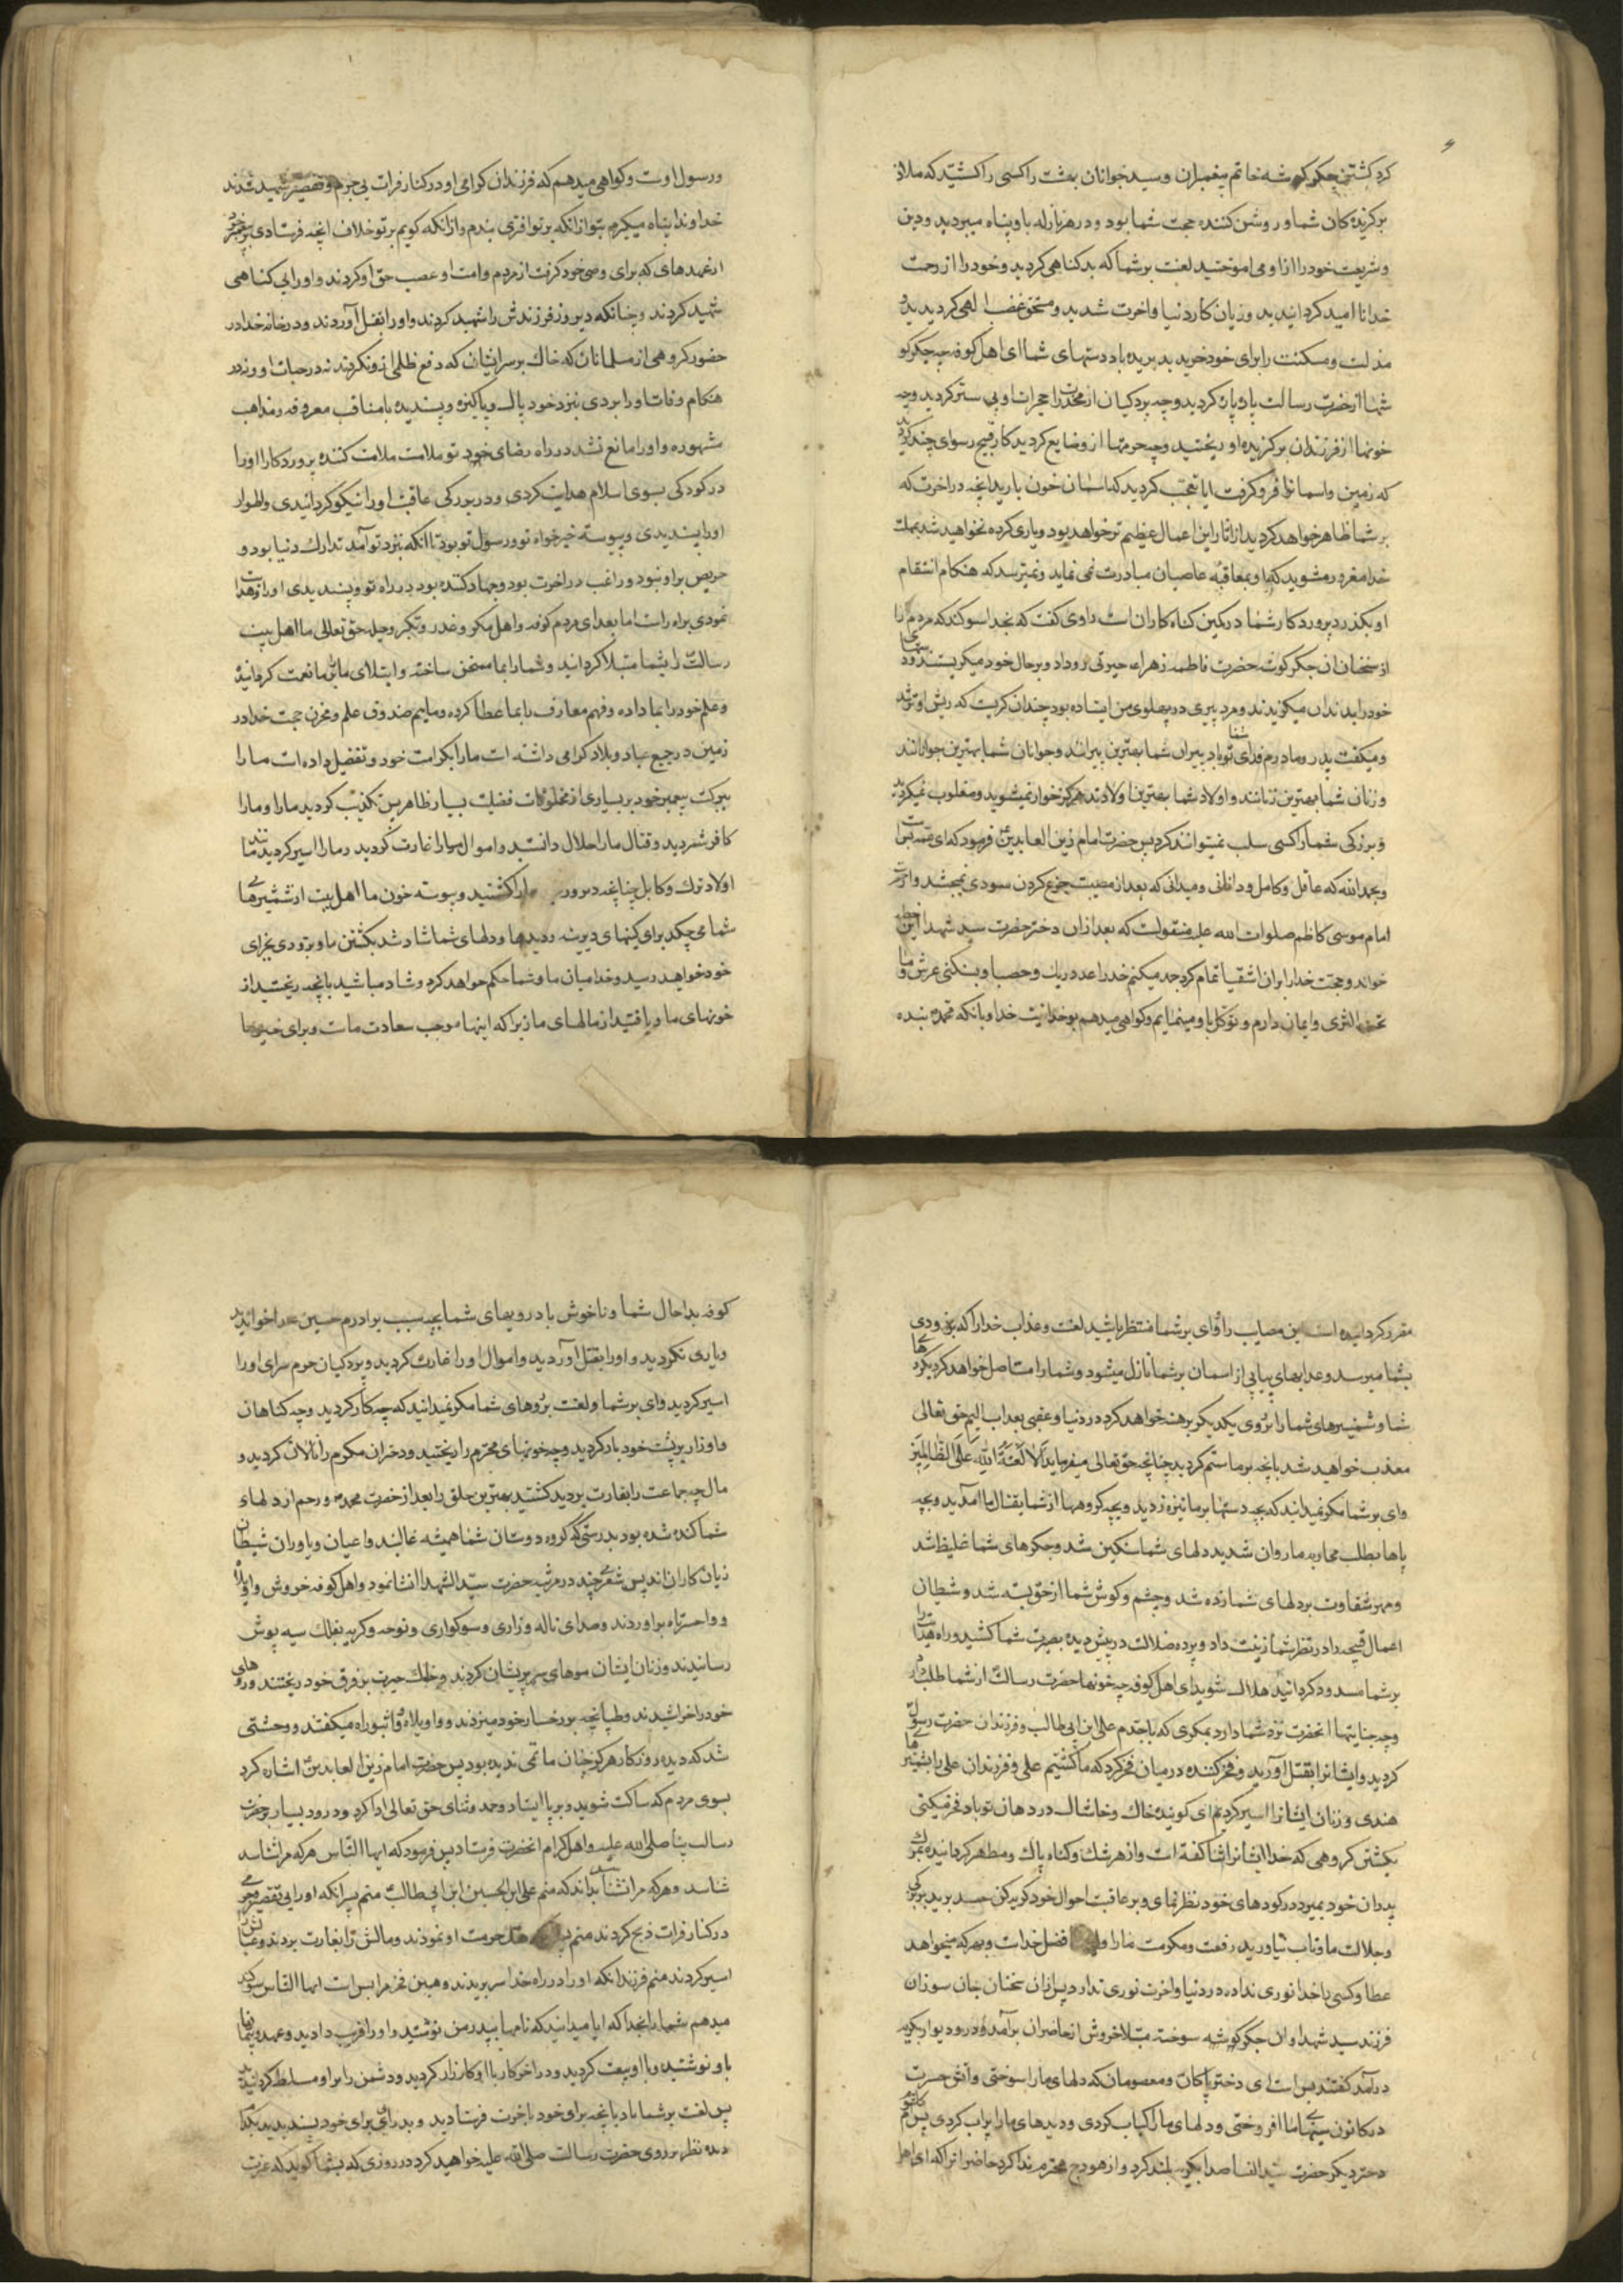 کرد کشتن جکر کوشه خاتم پیغمبران و سید جوانان بهشت را کسی را کشتید که ملاذ
برکزیده کان شما و روشن کننده حجت شما بود و در هر نازله باو پناه میبردید و دین
و شریعت خود را از او می اموختید لعنت بر شما که بد کناهی کردید و خود را از رحمت
خدا نا امید کردانیدید و زیان کار دنیا و اخرت شدید و مستحق غضب الهی کردیدید و
مذلت و مسکنت را برای خود خریدید بریده باد دستهای شما ای اهل کوفه چه جکر کو
شها از حضرت رسالت پاره پاره کردید و چه پردکیان از مخدرات حجرات او بی ستر کردید و چه
خونها از فرزندان برکزیده او ریختید و چه حرمتها از و ضایع کردید کار قبیح رسوای چند کردید
که زمین و اسمانرا فرو کرفت ایا تعجب کردید که اسمان خون بارید انچه در اخرت که
بر شما ظاهر خواهد کردید از اثار این اعمال عظیم تر خواهد بود و یاری کرده نخواهید شد بمهلت
خدا مغرور مشوید که او بمعاقبه عاصیان مبادرت نمی نماید و نمیترسد که هنکام انتقام
او بکذرد پروردکار شما در کمین کناه کاران است راوی کفت که بخدا سوکند که مردم را
از سخنان ان جکر کوشه حضرت فاطمه زهراء حیرتی رو داد و بر حال خود میکریستند و دستهای
خود را بدندان میکزیدند و مرد پیری در پهلوی من ایستاده بود چندان کریست که ریش او تر شد
و میکفت پدر و مادرم فدای شما باد پیران شما بهترین پیرانند و جوانان شما بهترین جوانانند
و زنان شما بهترین زنانند و اولاد شما بهترین اولادند هرکز خوار نمیشوید و مغلوب نمیکردید
و بزرکی شما را کسی سلب نمیتواند کرد پس حضرت امام زین العابدین فرمود که ای عمه بس است
و بحمد الله که عاقل و کامل و دانائی و میدانی که بعد از مصیبت جزع کردن سودی نمیبخشد و از حضرت
امام موسی کاظم صلوات الله علیه منقولست که بعد از ان دختر حضرت سید شهدا این خطبه
خواند و حجت خدا را بران اشقیا تمام کرد حمد میکنم خدا را بعدد ریک و حصبا و بسنکینی عرش و ما
تحت الثری و ایمان دارم و توکل باو مینمایم و کواهی میدهم بوحدانیت خدا و بانکه محمد بنده
و رسول اوست و کواهی میدهم که فرزندان کرامی او در کنار فرات بی جرم و تقصیر شهید شدند
خداوندا پناه میکیرم بتو از انکه بر تو افتری بندم و از انکه کویم بر تو خلاف انچه فرستادی بر پیغمبر خود
از عهدهای که برای وصی خود کرفت از مردم و امت او غصب حق او کردند و او را بی کناهی
شهید کردند و چنانکه دیروز فرزندش را شهید کردند و او را بقتل آوردند و در خانه خدا در
حضور کروهی از مسلمانان که خاک بر سر ایشان که دفع ظلمی از و نکردند نه در حیات او و نه در
هنکام وفات او را بردی بنزد خود پاک و پاکیزه و پسندیده با مناقب معروفه و مذاهب
مشهوره و او را مانع نشد در راه رضای خود تو ملامت ملامت کننده پروردکارا او را
در کودکی بسوی اسلام هدایت کردی و در بزرکی عاقبت او را نیکو کردانیدی و اطوار
او را پسندیدی و پیوسته خیر خواه تو و رسول تو بود تا انکه بنزد تو آمد تدارک دنیا بود و
حریص بر او نبود و راغب در اخرت بود و جهاد کننده بود در راه تو و پسندیدی او را و هدایت
نمودی براه راست اما بعد ای مردم کوفه و اهل مکر و غدر و تکبر و حیله حق تعالی ما اهل بیت
رسالت را بشما مبتلا کرداند و شما را بما ممتحن ساخته و ابتلای ما را بر ما نعمت کردانید
و علم خود را بما داده و فهم معارف را بما عطا کرده و ماییم صندوق علم و مخزن حجت خدا در
زمین در جمیع عباد و بلاد کرامی داشته است ما را بکرامت خود و تفضیل داده است ما را
ببرکت پیغمبر خود بر بسیاری از مخلوقات فضیلت بسیار ظاهر پس تکذیب کردید ما را و ما را
کافر شمردید و قتال ما را حلال دانستید و اموال ما را غارت کردید و ما را اسیر کردید مانند
اولاد ترک و کابل چنانچه دیروز ما را کشتید و پیوسته خون ما اهل بیت از شمشیرهای
شما می چکد برای کینهای دیرینه دیدها و دلهای شما شاد شد بکشتن ما و بزودی بجزای
خود خواهید رسید و خدا میان ما و شما حکم خواهد کرد و شاد مباشید بانچه ریختید از
خونهای ما و یافتید از مالهای ما زیرا که اینها موجب سعادت ماست و برای
مقرر کردانیده است این مصایب را وای بر شما منتظر باشید لعنت و عذاب خدا را که بزودی
بشما میرسد و عذابهای پیاپی از اسمان بر شما نازل میشود و شما را مستاصل خواهد کرد
شما و شمشیرهای شما را بروی یکدیکر برهنه خواهد کرد در دنیا و عقبی بعذاب الیم حق تعالی
معذب خواهید شد بانچه بر ما ستم کردید چنانچه حق تعالی میفرماید اَلا لَعنَةُ اللهِ عَلَى الظّالِمِینَ
وای بر شما مکر نمیدانید که بچه دستها بر ما نیزه زدید و بچه کروهها از شما بقتال ما آمدید و بچه
پاها بطلب محاربه ما روان شدید دلهای شما سنکین شد و جکرهای شما غلیظ شد
و مهر شقاوت بر دلهای شما زده شد و چشم و کوش شما از حق بسته شد و شیطان
اعمال قبیحه را در نظر شما زینت داد و پرده ضلالت در پیش دیده بصیرت شما کشید و راه هدایت را
بر شما مسدود کردانید هلاک شوید ای اهل کوفه چه خونها حضرت رسالت از شما طلب دارد
و چه جنایتها انحضرت نزد شما دارد بمکری که با جدم علی ابن ابی طالب و فرزندان حضرت رسول
کردید و ایشانرا بقتل آورید و فخر کننده در میان فخر کرد که ما کشتیم علی و فرزندان علی را بشمشیرهای
هندی و زنان ایشانرا اسیر کردیم ای کوینده خاک و خاشاک در دهان تو باد فخر میکنی
بکشتن کروهی که خدا ایشانرا ثنا کفته است و از هر شک و کناه پاک و مطهر کردانیده
پدران خود بمیرد در کودهای خود نظر نمای و بر عاقبت احوال خود کریه کن حسد بردید بر بزرکی
و جلالت ما و تاب نیاورید رفعت و مکرمت ما را و فضل خداست و بهر که میخواهد
عطا و کسی با خدا نوری نداده در دنیا و اخرت نوری ندارد پس ازان سخنان جان سوزان
فرزند سید شهدا وان جکر کوشه سوخته مبتلا خروش از حاضران برآمد و در و دیوار بکریه
درآمد کفتند بس است ای دختر پاکان و معصومان که دلهای ما را سوختی و آتش حسرت
در کانون سینهای ما افروختی و دلهای ما را کباب کردی و دیدهای ما را پر آب کردی پس ام کلثوم
دختر دیکر حضرت سید النسا صدا بکریه بلند کرد و از هودج محترم ندا کرد حاضرانرا که ای اهل
کوفه بدا حال شما و ناخوش باد رویهای شما بچه سبب برادرم حسین را خواندید
و یاری نکردید و او را بقتل آوردید و اموال او را غارت کردید و پردکیان حرم سرای او را
اسیر کردید وای بر شما و لعنت بروهای شما مکر نمیدانید که چه کار کردید و چه کناهان
و اوزار بر پشت خود بار کردید و چه خونهای محترم را ریختید و دختران مکرم را نالان کردید و
مال چه جماعت را بغارت بردید کشتید بهترین خلق را بعد از حضرت محمد و رحم از دلهای
شما کنده شده بود بدرستی که کروه دوستان شما همیشه غالبند و اعیان و یاوران شیطان
زیان کاران اند پس شعری چند در مرثیه حضرت سید الشهدا انشا نمود و اهل کوفه خروش واویلاه
و واحسرتاه براوردند و صدای ناله و زاری و سوکواری و نوحه و کریه بفلک سیه پوش
رسانیدند و زنان ایشان موهای سر پریشان کردند و خاک حیرت بر فرق خود ریختند و روهای
خود را خراشیدند و طپانچه بر رخسار خود میزدند و واویلاه و واثبوراه میکفتند و وحشتی
شد که دیده روزکار هرکز چنان ماتمی ندیده بود پس حضرت امام زین العابدین اشاره کرد
بسوی مردم که ساکت شوید و بر پا ایستاد و حمد و ثنای حق تعالی ادا کرد و درود بسیار بر حضرت
رسالت پناه صلی الله علیه و اهل کرام انحضرت فرستاد پس فرمود که ایها الناس هر که مرا شناسد
شناسد و هرکه مرا نشناسد بداند که منم علی ابن الحسین ابن ابی طالب منم پسر انکه او را بی تقصیر و جرمی
در کنار فرات ذبح کردند منم هتک حرمت او نمودند و مالش را بغارت بردند و عیالش را
اسیر کردند منم فرزند انکه او را در راه خدا سر بریدند و همین فخر مرا بس است ایها الناس سوکند
میدهم شما را بخدا که ایا میدانید که نامها بپدر من نوشتید و او را فریب دادید و عهد و پیمانها
باو نوشتید و با او بیعت کردید و در اخر کار با او کارزار کردید و دشمن را بر او مسلط کردانیدید
پس لعنت بر شما باد بانچه برای خود باخرت فرستادید و بد رائی برای خود پسندیدید بکدام
دیده نظر بر روی حضرت رسالت صلی الله علیه خواهید کرد در روزی که بشما کوید که عترت